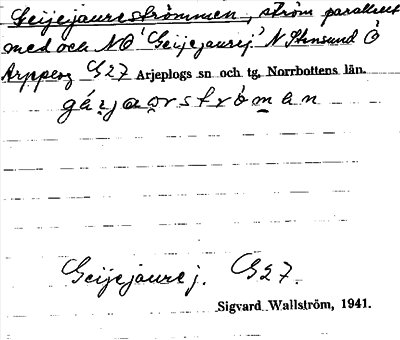 Geijejaurestrømmen, ström parallelt
med och NO Geijejaurej. N Stensund Ö
Arpplog G27 Arjeplogs sn och tg, Norrbottens län.
Geijejaurej. G27.
Sigvard Wallström, 1941.